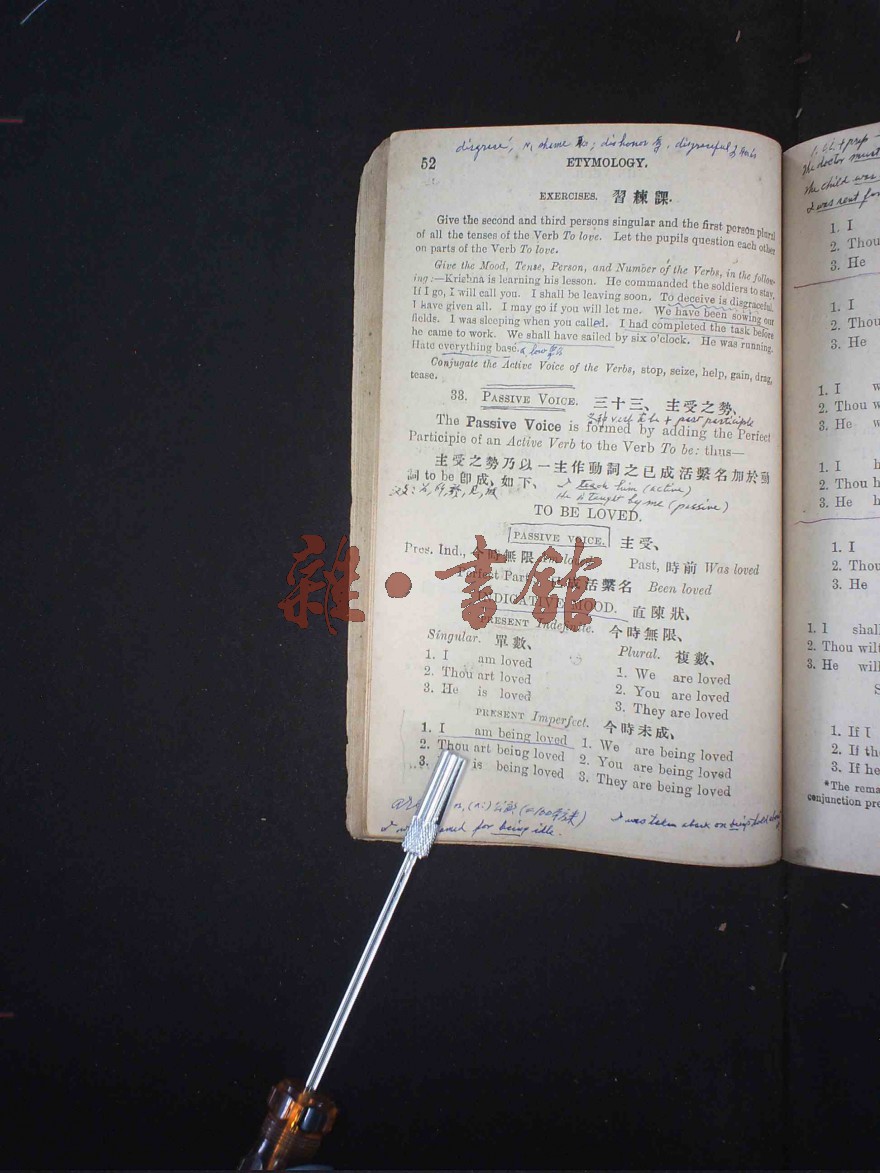 disgrace, n, shame
52
ETYMOLOGY.
EXERCISES. 習練課.
Give the second and third persons singular and the first person plural
of all the tenses of the Verb To love. Let the pupils question each other
on parts of the Verb To love.
Give the Mood, Tense, Person, and Number of the Verbs, in the follow-
ing:—Krishna is learning his lesson. He commanded the soldiers to stay.
If I go, I will call you. I shall be leaving soon. To deceive is disgraceful.
I have given all. I may go if you will let me. We have been sowing our
fields. I was sleeping when you called. I had completed the task before
he came to work. We shall have sailed by six o'clock. He was running.
Hate everything base.
Conjugate the Active Voice of the Verbs, stop, seize, help, gain, drag,
tease.
33. PASSIVE VOICE. 三十三、主受之勢、
verb to be + past participle
The Passive Voice is formed by adding the Perfect
Participle of an Active Verb to the Verb To be: thus—
主受之勢乃以一主作動詞之已成活繫名加於動
詞 to be 卽成、如下、
I teach him (active)
He is taught by me (passive)
TO BE LOVED.
PASSIVE VOICE. 主受、
Pres. Ind., 今時無限 Past, 時前 Was loved
Perfect Part. 已成活繫名 Been loved
雜·書館
INDICATIVE MOOD. 直陳狀、
PRESENT Indefinite. 今時無限、
Singular. 單數、 Plural. 複數、
1. I am loved 1. We are loved
2. Thou art loved 2. You are loved
3. He is loved 3. They are loved
PRESENT Imperfect. 今時未成、
1. I am being loved 1. We are being loved
2. Thou art being loved 2. You are being loved
3. is being loved 3. They are being loved
for being idle.
I was taken aback on being told
the doctor must
the child was
I was sent for
1. I
2. Thou
3. He
1. I
2. Thou
3. He
1. I
2. Thou
3. He
1. I
2. Thou
3. He
1. I
2. Thou
3. He
1. I shal
2. Thou wilt
3. He will
1. If I
2. If th
3. If he
*The rema
conjunction pre